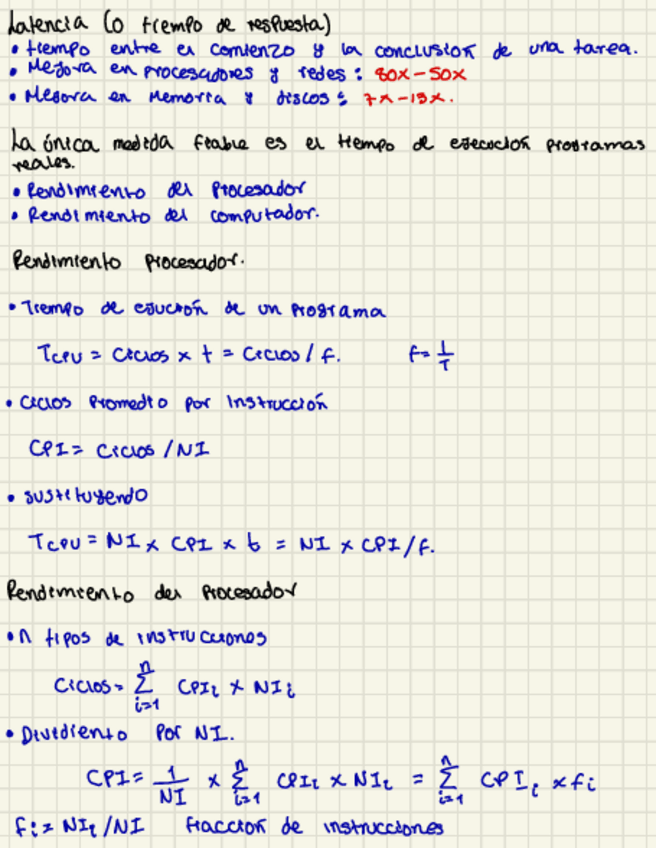 Latencia (o tiempo de respuesta)
• tiempo entre el comienzo y la conclusión de una tarea.
• Mejora en procesadores y redes: 80x-50x
• Mejora en Memoria y discos: 7x-13x.
La única medida fiable es el tiempo de ejecución programas
reales.
• Rendimiento del Procesador
• Rendimiento del computador.
Rendimiento Procesador.
• Tiempo de ejución de un programa
TCPU = Ciclos x t = Ciclos / f. f = 1/T
• Ciclos Promedio por Instrucción
CPI = Ciclos / NI
• Sustituyendo
TCPU = NI x CPI x t = NI x CPI/f.
Rendimiento del Procesador
• n tipos de instrucciones
Ciclos = Σ_{i=1}^{n} CPIi x NIi
• Dividiento Por NI.
CPI = 1/NI x Σ_{i=1}^{n} CPIi x NIi = Σ_{i=1}^{n} CPIi x fi
fi = NIi/NI fracción de instrucciones